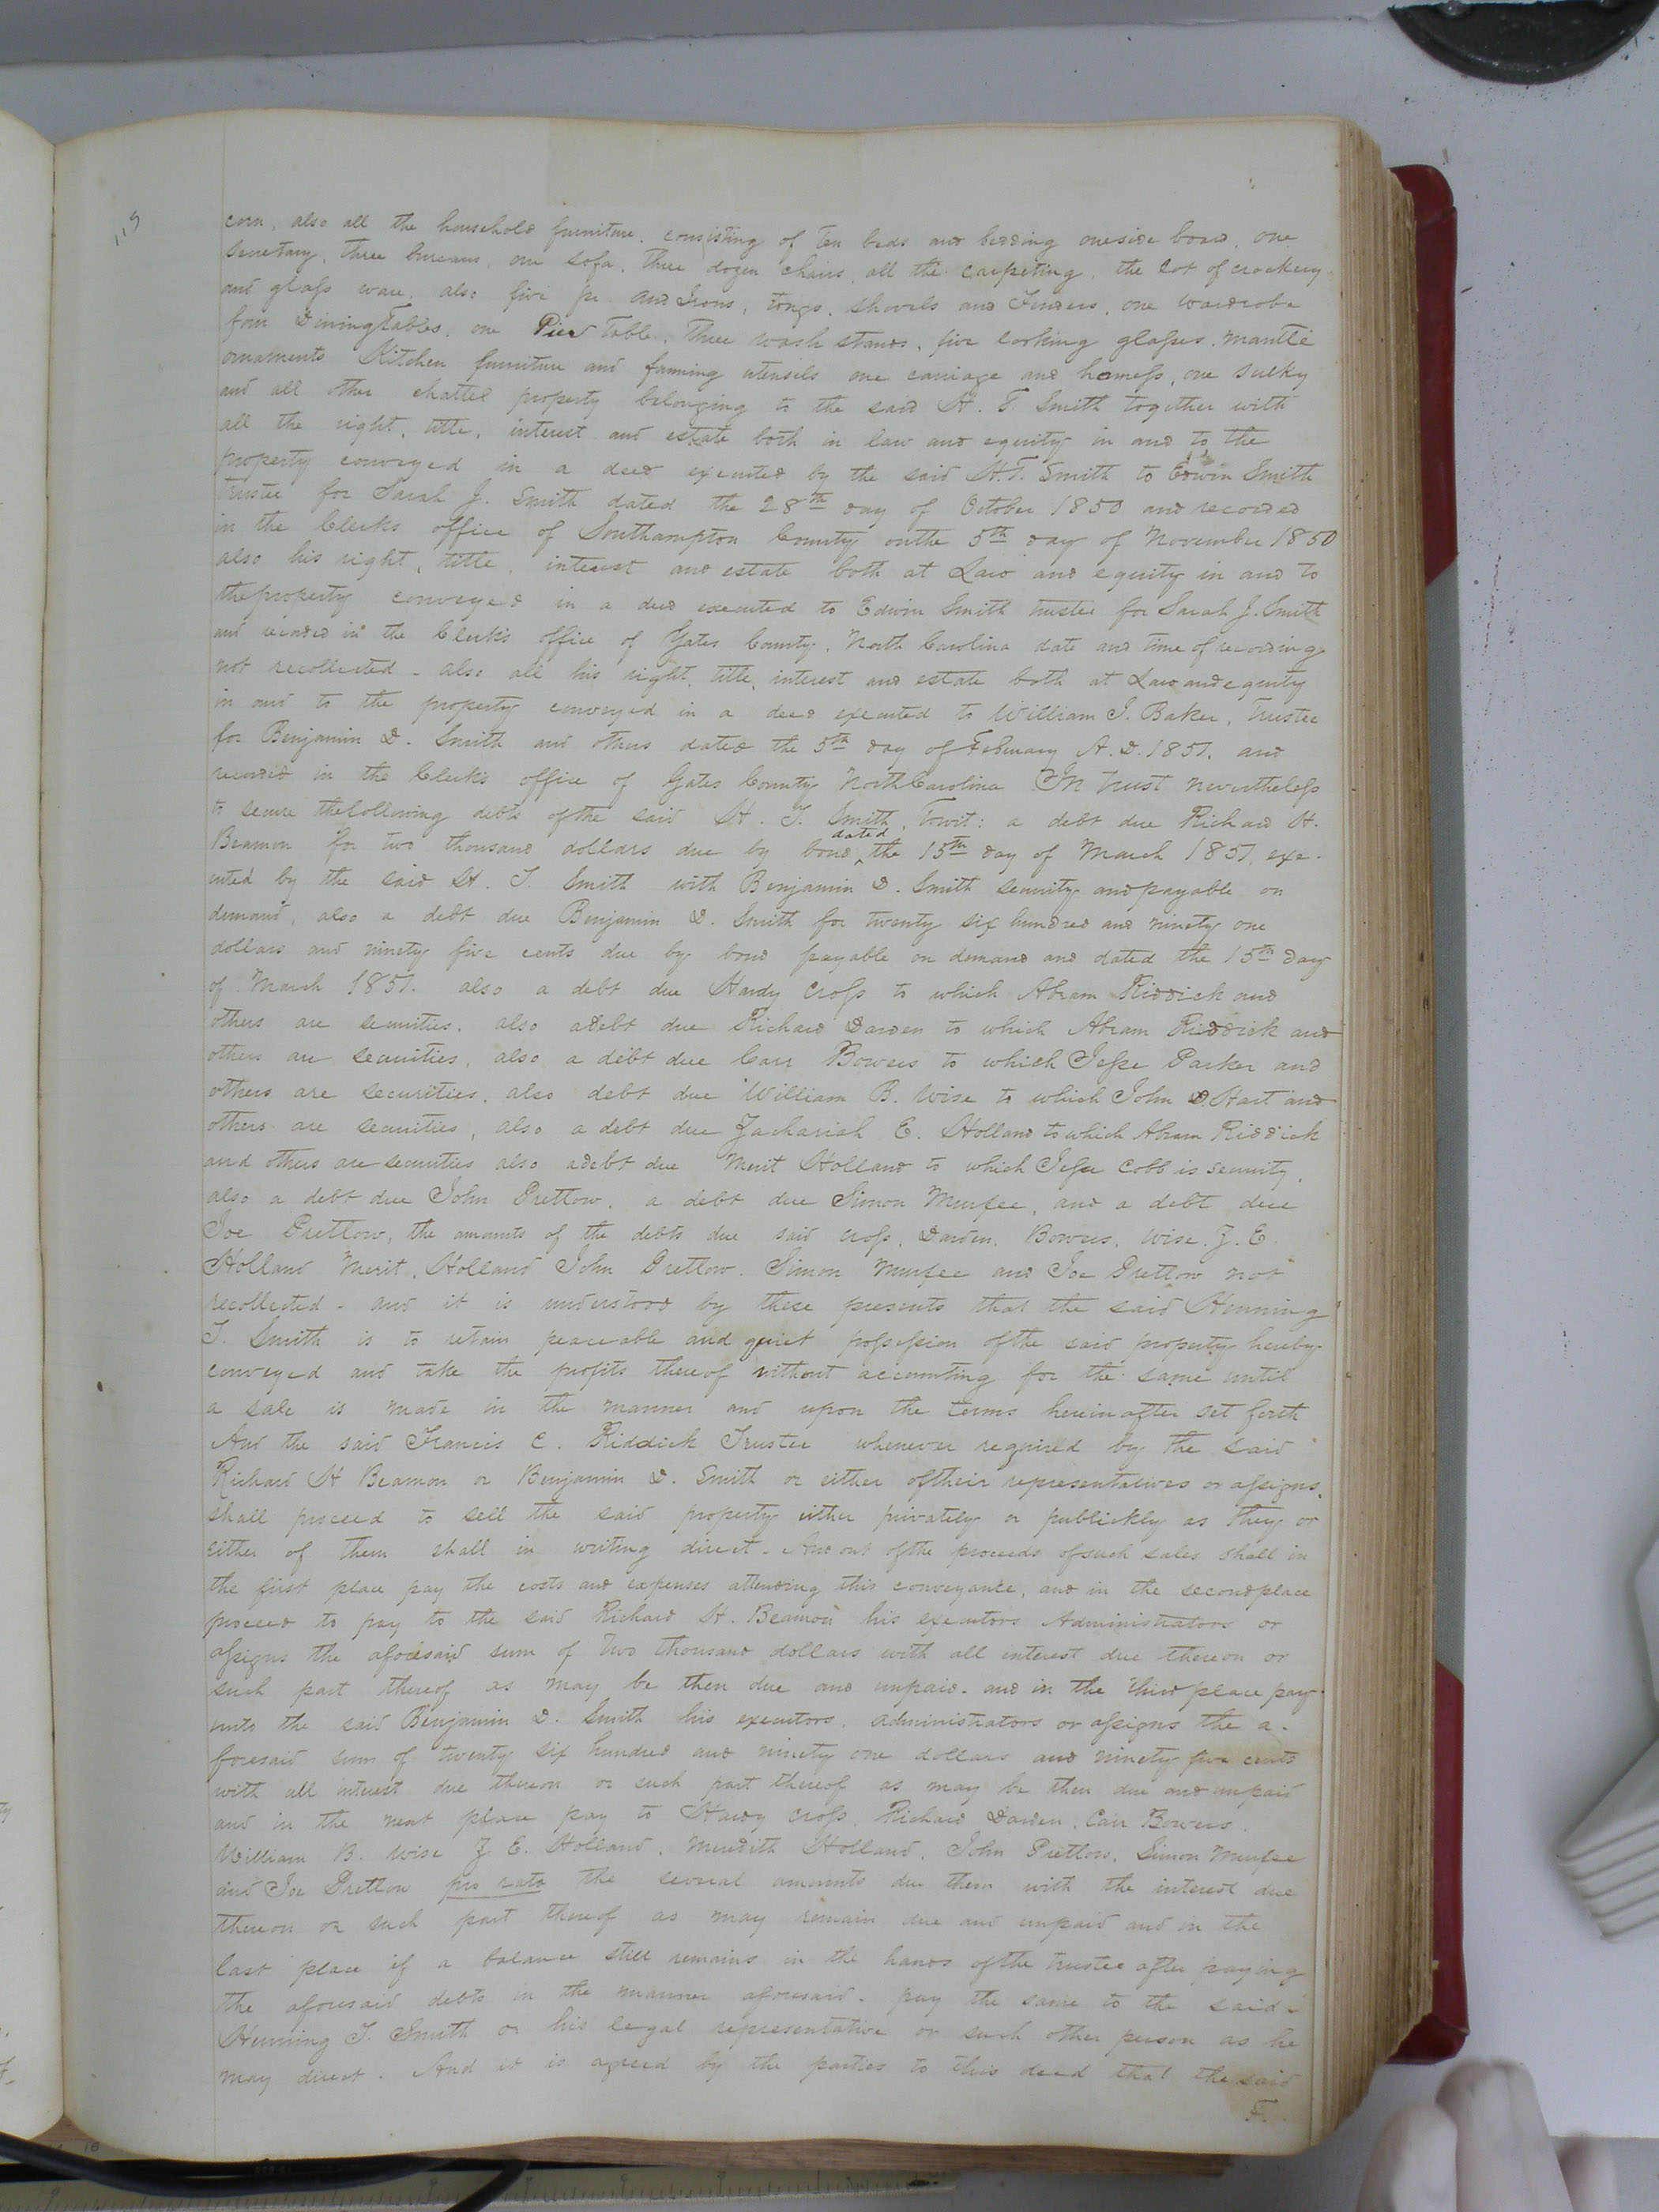 115
corn, also all the household furniture, consisting of ten beds and bedding one side board, one
secretary, three bureaus, one sofa, three dozen chairs, all the carpeting, the lot of crockery
and glass ware, also five pr. And Irons, tongs, shovels and Fenders, one wardrobe
four Dining Tables, one Pier Table, three wash stands, five looking glasses, mantle
ornaments Kitchen furniture and farming utensils one carriage and harness, one sulky
and all other chattel property belonging to the said H. T. Smith together with
all the right, title, interest and estate both in law and equity in and to the
property conveyed in a deed executed by the said H. T. Smith to Edwin Smith
trustee for Sarah J. Smith dated the 28th day of October 1850 and recorded
in the Clerks office of Southampton County on the 5th day of November 1850
also his right, title, interest and estate both at Law and equity in and to
the property conveyed in a deed executed to Edwin Smith trustee for Sarah J. Smith
and recorded in the Clerk's office of Gates County, North Carolina date and time of recording
not recollected - also all his right, title, interest and estate both at Law and equity
in and to the property conveyed in a deed executed to William J. Baker, trustee
for Benjamin D. Smith and others dated the 5th day of February A. D. 1851, and
recorded in the Clerk's office of Gates County North Carolina In trust nevertheless
to secure the following debts of the said H. T. Smith, Towit: a debt due Richard H.
Beamon for two thousand dollars due by bond dated the 15th day of March 1851, exe-
cuted by the said H. T. Smith with Benjamin D. Smith security and payable on
demand, also a debt due Benjamin D. Smith for twenty six hundred and ninety one
dollars and ninety five cents due by bond payable on demand and dated the 15th day
of March 1851. also a debt due Hardy Cross to which Abram Riddick and
others are securities, also a debt due Richard Darden to which Abram Riddick and
others are securities, also a debt due Carr Bowers to which Jesse Parker and
others are securities, also debt due William B. Wise to which John D. Hart and
others are securities, also a debt due Zachariah E. Holland to which Abram Riddick
and others are securities also a debt due Merit Holland to which Jesse Cobb is security,
also a debt due John Pretlow, a debt due Simon Murfee, and a debt due
Joe Pretlow, the amounts of the debts due said Cross, Darden, Bowers, Wise, Z. E.
Holland Merit, Holland John Pretlow, Simon Murfee and Joe Pretlow not
recollected - and it is understood by these presents that the said Henning
T. Smith is to retain peaceable and quiet possession of the said property hereby
conveyed and take the profits thereof without accounting for the same until
a sale is made in the manner and upon the terms herein after set forth
And the said Francis E. Riddick Trustee whenever required by the said
Richard H Beamon or Benjamin D. Smith or either of their representatives or assigns,
shall proceed to sell the said property either privately or publickly as they or
either of them shall in writing direct - And out of the proceeds of such sales shall in
the first place pay the costs and expenses attending this conveyance, and in the second place
proceed to pay to the said Richard H. Beamon his executors Administrators or
assigns the aforesaid sum of two thousand dollars with all interest due thereon or
such part thereof as may be then due and unpaid. and in the third place pay
unto the said Benjamin D. Smith his executors, administrators or assigns the a-
foresaid sum of twenty six hundred and ninety one dollars and ninety five cents
with all interest due thereon or such part thereof as may be then due and unpaid
and in the next place pay to Hardy Cross, Richard Darden, Carr Bowers,
William B. Wise Z E. Holland, Meredith Holland, John Pretlow, Simon Murfee
and Joe Pretlow pro rata the several amounts due them with the interest due
thereon or such part thereof as may remain due and unpaid and in the
last place if a balance still remains in the hands of the trustee after paying
the aforesaid debts in the manner aforesaid. pay the same to the said
Henning T. Smith or his legal representative or such other person as he
may direct. And it is agreed by the parties to this deed that the said
F.